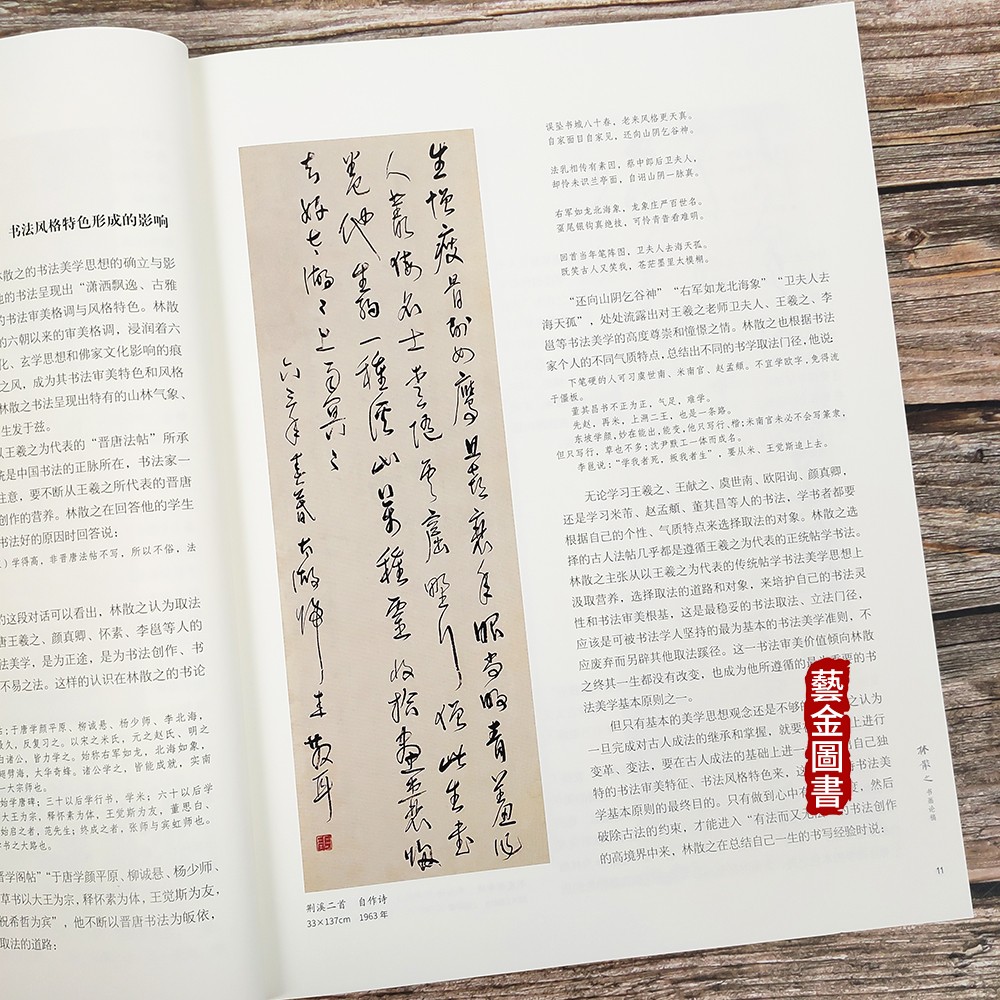 书法风格特色形成的影响
林散之的书法美学思想的确立与影
他的书法呈现出“潇洒飘逸、古雅
的书法审美格调与风格特色。林散
的六朝以来的审美格调，浸润着六
化、玄学思想和佛家文化影响的痕
之风，成为其书法审美特色和风格
林散之书法呈现出特有的山林气象、
生发于兹。
以王羲之为代表的“晋唐法帖”所承
统是中国书法的正脉所在，书法家一
注意，要不断从王羲之所代表的晋唐
创作的营养。林散之在回答他的学生
书法好的原因时回答说：
）学得高，非晋唐法帖不写，所以不俗，法
的这段对话可以看出，林散之认为取法
唐王羲之、颜真卿、怀素、李邕等人的
法美学，是为正途，是为书法创作、书
不易之法。这样的认识在林散之的书论
帖；于唐学颜平原、柳诚悬、杨少师、李北海，
最久，反复习之。以宋之米氏，元之赵氏、明之
自诸公，皆力学之。始宗右军如龙，北海如象，
翔劈海，大华奇峰。诸公学之，皆能成就，实南
一大宗师也。
始学唐碑；三十以后学行书，学米；六十以后学
大王为宗，释怀素为体，王觉斯为友，董思白、
始启之者，范先生；终成之者，张师与宾虹师也。
学书之大路也。
晋学阁帖”“于唐学颜平原、柳诚悬、杨少师、
草书以大王为宗，释怀素为体，王觉斯为友，
祝希哲为宾”，他不断以晋唐书法为皈依，
取法的道路：
生憎瘦骨劲如鹰且喜衰年眼尚明青盖浮
人丛
名士
野
憎此生画
卷他生
一种溪山万种灵收拾画囊
去
湖上
六三年春暮太湖归来散耳
荆溪二首 自作诗
33×137cm 1963年
误坠书城八十春，老来风格更天真。
自家面目自家见，还向山阴乞谷神。
法乳相传有素因，蔡中郎后卫夫人，
却怜未识兰亭面，自诩山阴一脉真。
右军如龙北海象，龙象庄严百世名。
虿尾银钩真绝技，可怜青昔者难明。
回首当年笔阵图，卫夫人去海天孤。
既笑古人又笑我，苍茫墨里太模糊。
“还向山阴乞谷神”“右军如龙北海象”“卫夫人去
海天孤”，处处流露出对王羲之老师卫夫人、王羲之、李
邕等书法美学的高度尊崇和憧憬之情。林散之也根据书法
家个人的不同气质特点，总结出不同的书学取法门径，他说：
下笔硬的人可习虞世南、米南宫、赵孟頫。不宜学欧字，免得流
于僵板。
董其昌书不正为正，气足，难学。
先赵，再米，上溯二王，也是一条路。
东坡学颜，妙在能出，能变，他只写行、楷；米南宫未必不会写篆隶，
但只写行，草也不多；沈尹默工一体而成名。
李邕说：“学我者死，叛我者生”，要从米、王觉斯追上去。
无论学习王羲之、王献之、虞世南、欧阳询、颜真卿，
还是学习米芾、赵孟頫、董其昌等人的书法，学书者都要
根据自己的个性、气质特点来选择取法的对象。林散之选
择的古人法帖几乎都是遵循王羲之为代表的正统帖学书法。
林散之主张从以王羲之为代表的传统帖学书法美学思想上
汲取营养，选择取法的道路和对象，来培护自己的书法灵
性和书法审美根基，这是最稳妥的书法取法、立法门径，
应该是可被书法学人坚持的最为基本的书法美学准则，不
应废弃而另辟其他取法蹊径。这一书法审美价值倾向林散
之终其一生都没有改变，也成为他所遵循的最为重要的书
法美学基本原则之一。
但只有基本的美学思想观念还是不够的，之认为
一旦完成对古人成法的继承和掌握，就要上进行
变革、变法，要在古人成法的基础上进一己独
特的书法审美特征、书法风格特色来，这书法美
学基本原则的最终目的。只有做到心中变，然后
破除古法的约束，才能进入“有法而又无法”的书法创作
的高境界中来，林散之在总结自己一生的书写经验时说：
藝金圖書
林散之 书画论稿
11